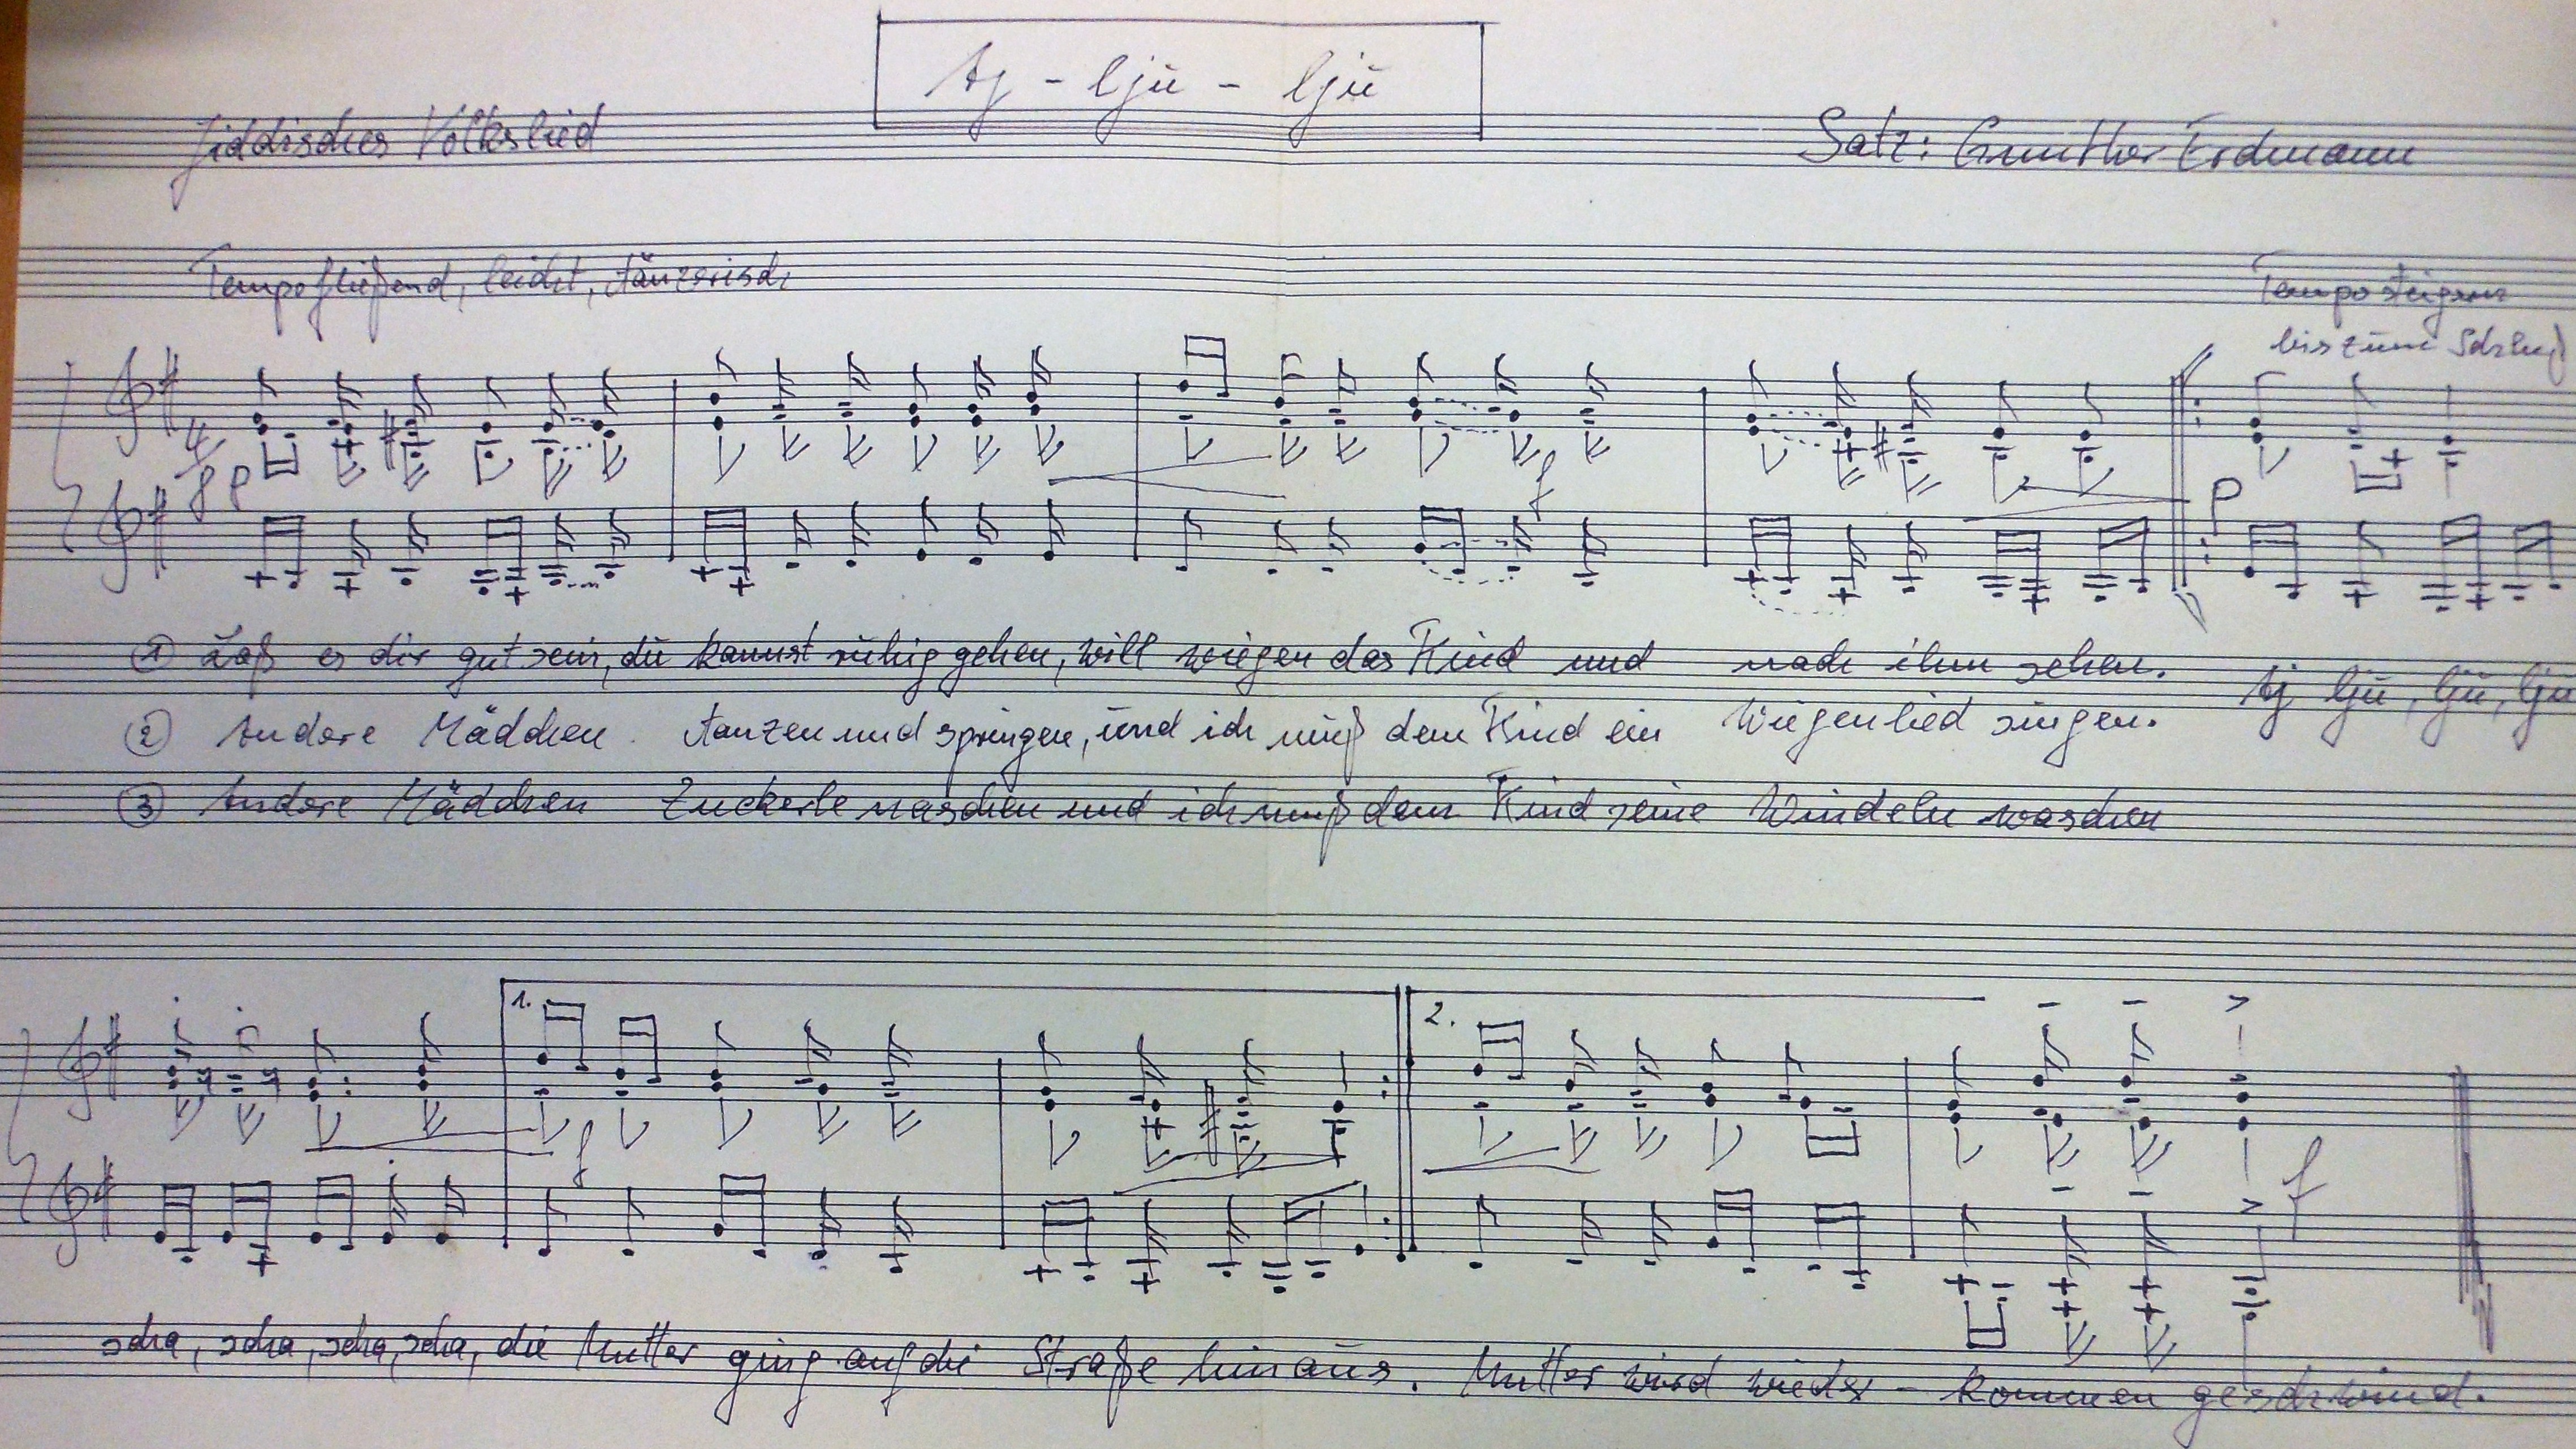 Aj - ljū - ljū
Jiddisches Volkslied
Satz: Gunther Erdmann
Tempo fließend, leicht, tänzerisch
Tempo steigern
bis zum Schluß
pp
f
p
① Laß es dir gut sein, dū kannst rūhig gehen, will wiegen das Kind und nach ihm sehen. Aj ljū, ljū, ljū
② Andere Mädchen tanzen und springen, und ich muß dem Kind ein Wiegenlied singen.
③ Andere Mädchen Zuckerle naschen und ich muß dem Kind seine Windeln waschen
1.
2.
f
f
scha, scha, scha, scha, die Mutter ging auf die Straße hinaūs. Mutter wird wieder - kommen geschwind.